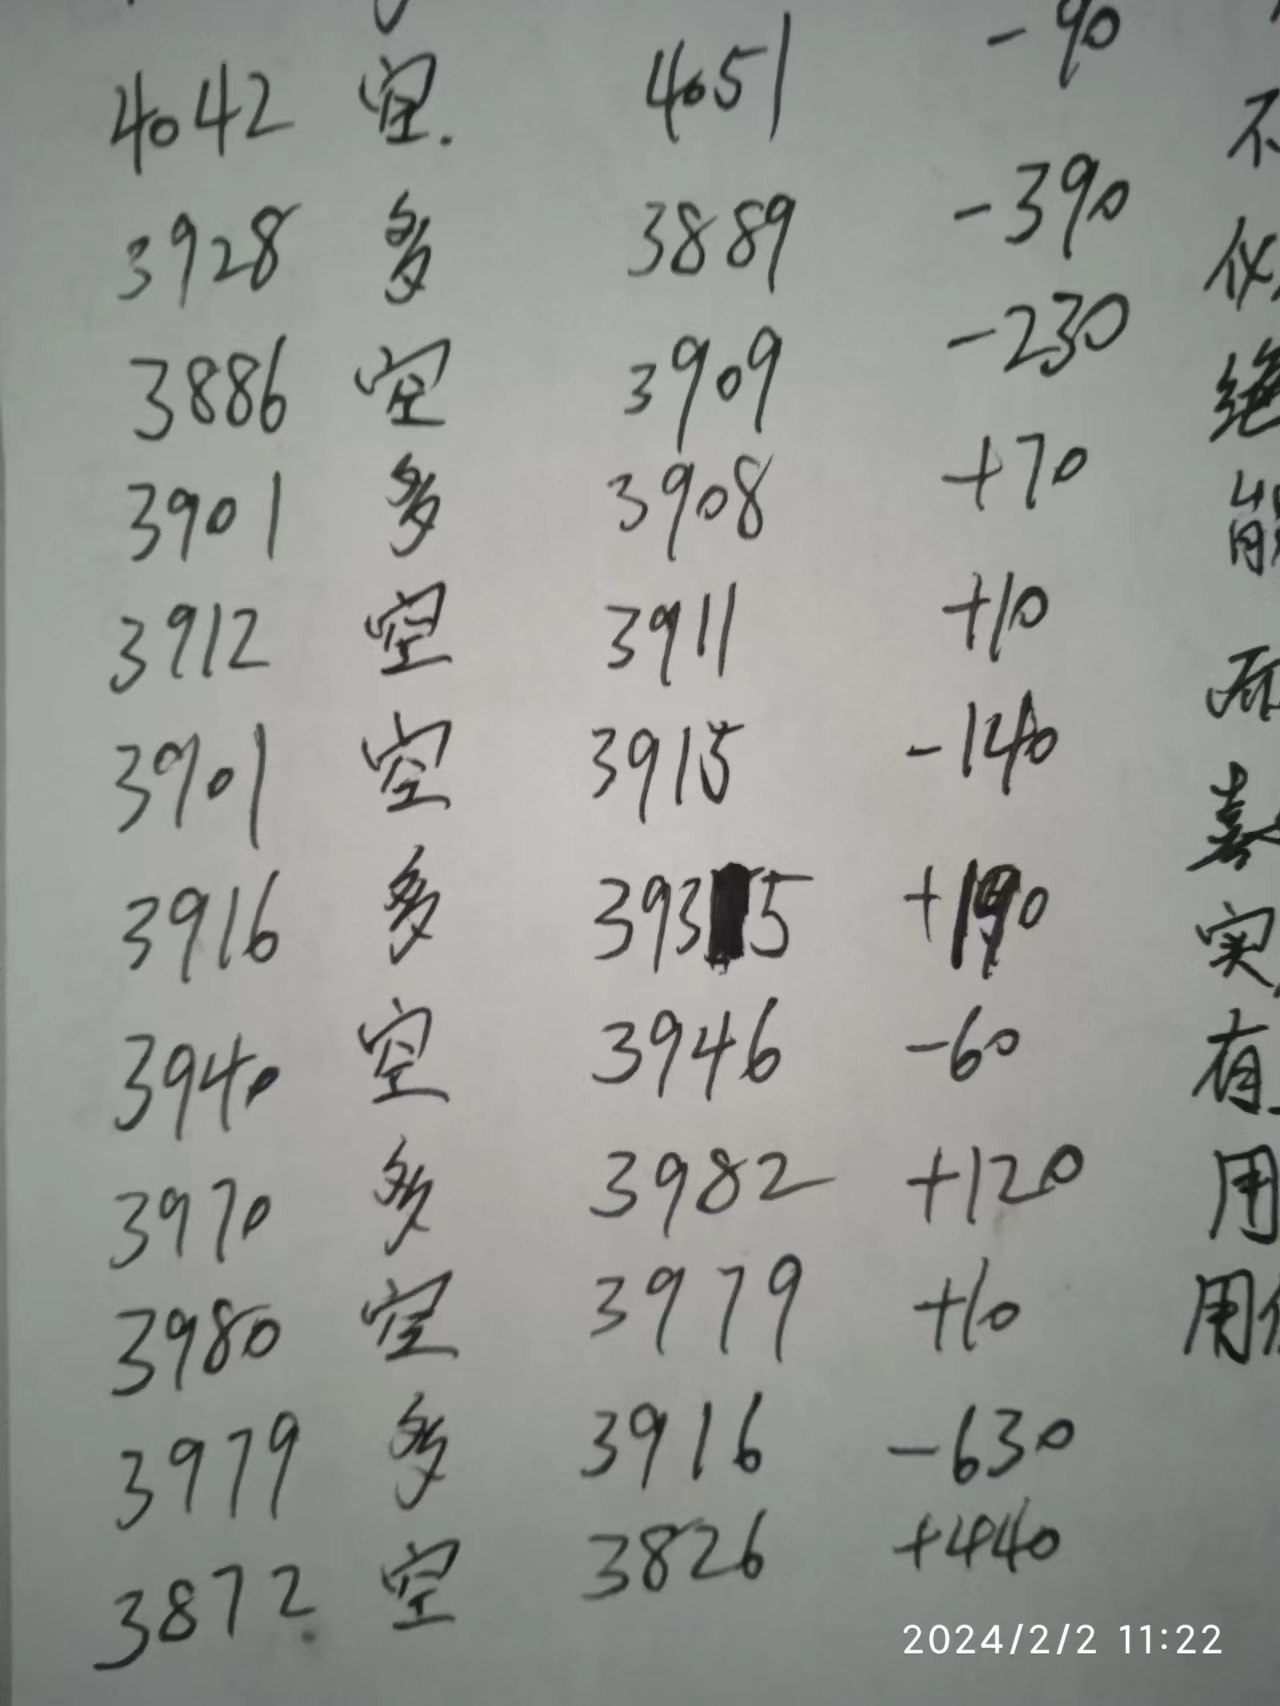 4042 空. 4051 -90
3928 多 3889 -390
3886 空 3909 -230
3901 多 3908 +70
3912 空 3911 +10
3901 空 3915 -140
3916 多 3935 +190
3940 空 3946 -60
3970 多 3982 +120
3980 空 3979 +10
3979 多 3916 -630
3872 空 3826 +440
不
绝
能
实
有
用
用
2024/2/2 11:22